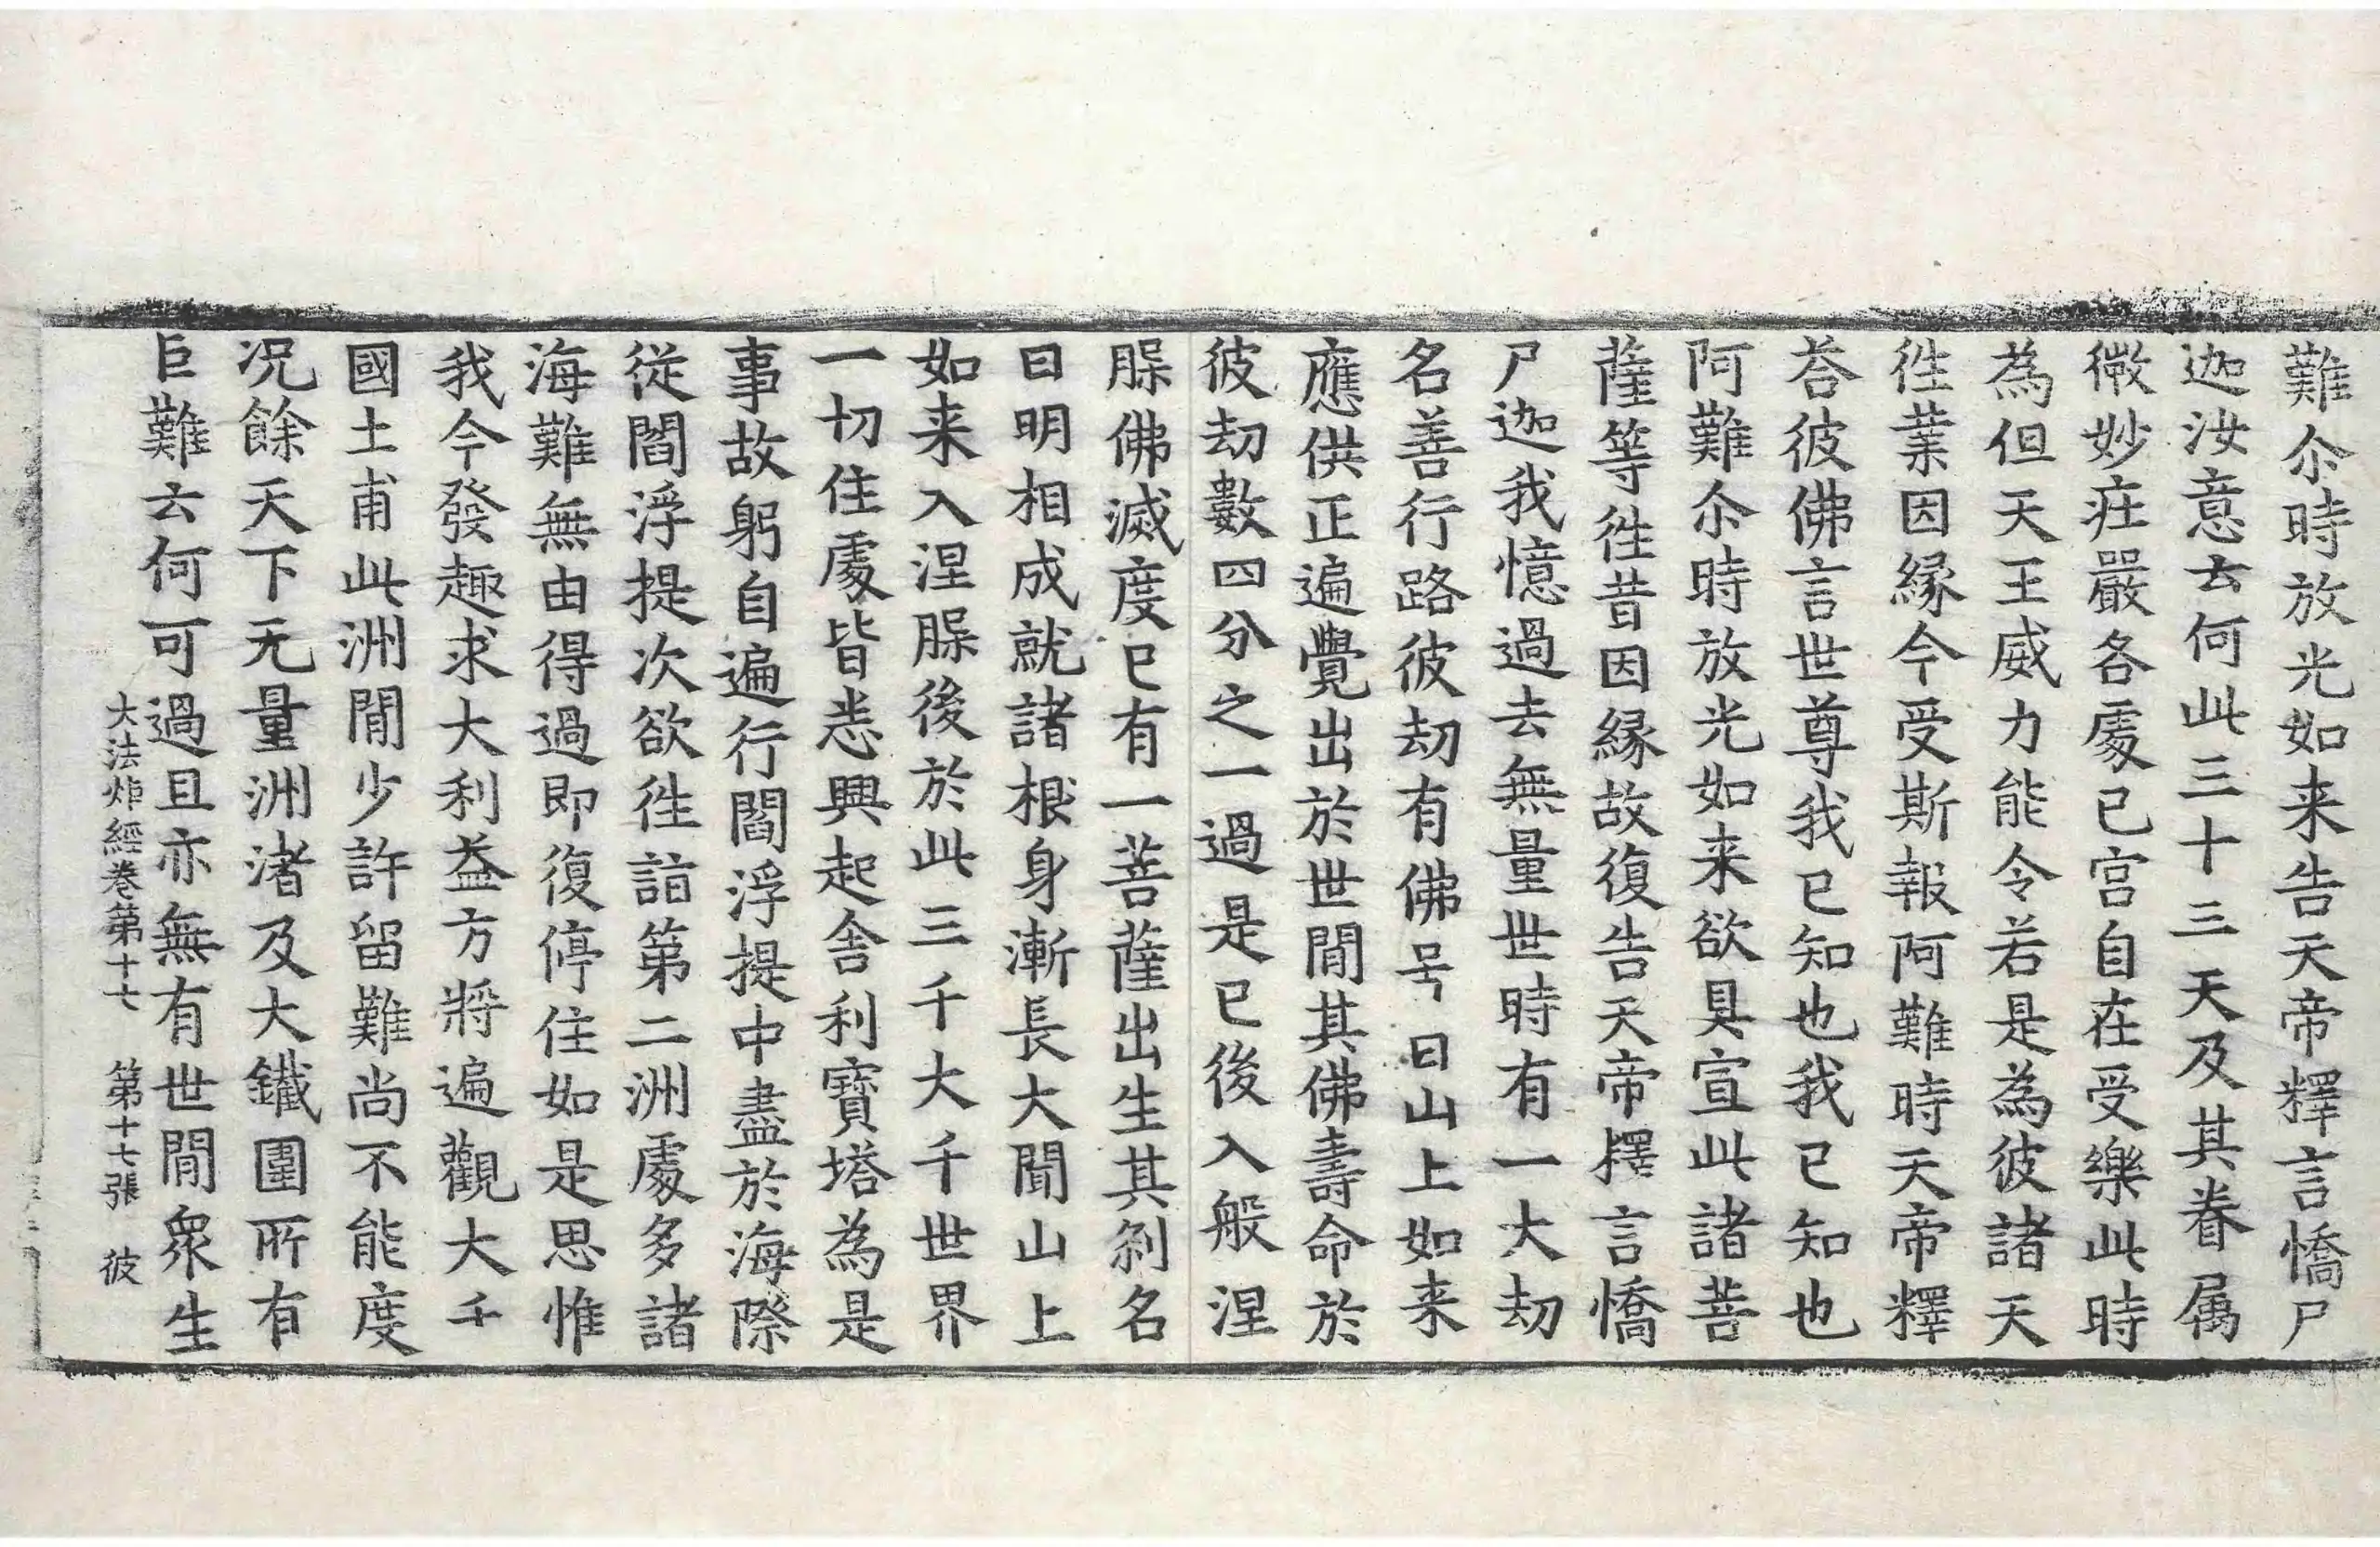 難尒時放光如来告天帝釋言憍尸
迦汝意云何此三十三天及其眷属
微妙庄嚴各處已宮自在受樂此時
為但天王威力能令若是為彼諸天
徃業因緣今受斯報阿難時天帝釋
荅彼佛言世尊我已知也我已知也
阿難尒時放光如来欲具宣此諸菩
薩等徃昔因緣故復告天帝釋言憍
尸迦我憶過去無量世時有一大劫
名善行路彼劫有佛号曰山上如来
應供正遍覺出於世閒其佛壽命於
彼劫數四分之一過是已後入般涅
𦜖佛滅度已有一菩薩出生其刹名
曰明相成就諸根身漸長大聞山上
如来入涅𦜖後於此三千大千世界
一切住處皆悉興起舍利寶塔為是
事故躬自遍行閻浮提中盡於海際
従閻浮提次欲徃詣第二洲處多諸
海難無由得過即復停住如是思惟
我今發趣求大利益方將遍觀大千
國土甫此洲閒少許留難尚不能度
况餘天下无量洲渚及大鐵圍所有
巨難云何可過且亦無有世閒衆生
大法炬經卷第十七　第十七張　彼